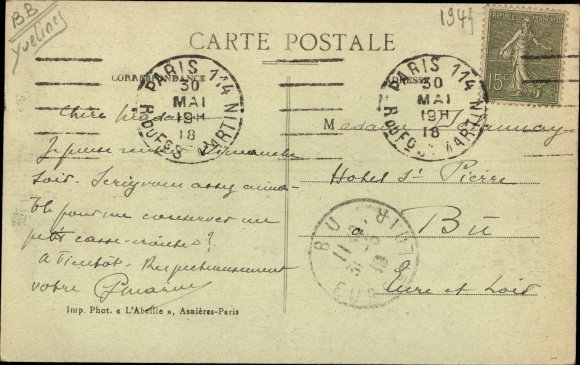 BB
Yvelines
194
CARTE POSTALE
CORRESPONDANCE
ADRESSE
PARIS 114
30
MAI
19H
18
R. DU FG ST MARTIN
PARIS 114
30
MAI
19H
18
R. DU FG ST MARTIN
15c
Chère Madame
Je pense rentrer Dimanche
soir. Seriez vous assez aima-
ble pour me conserver un
petit casse-croûte?
A bientôt. Respectueusement
votre
Imp. Phot. « L'Abeille », Asnières-Paris
Madame
Hotel St Pierre
à Bû
Eure et Loir
BU